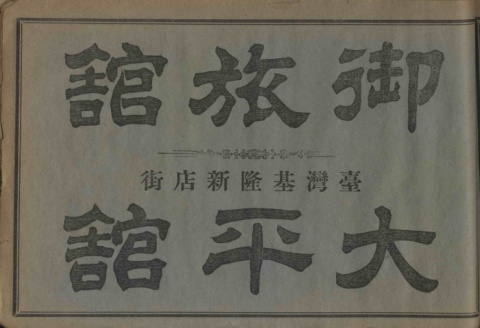 御旅館
臺灣基隆新店街
大平館